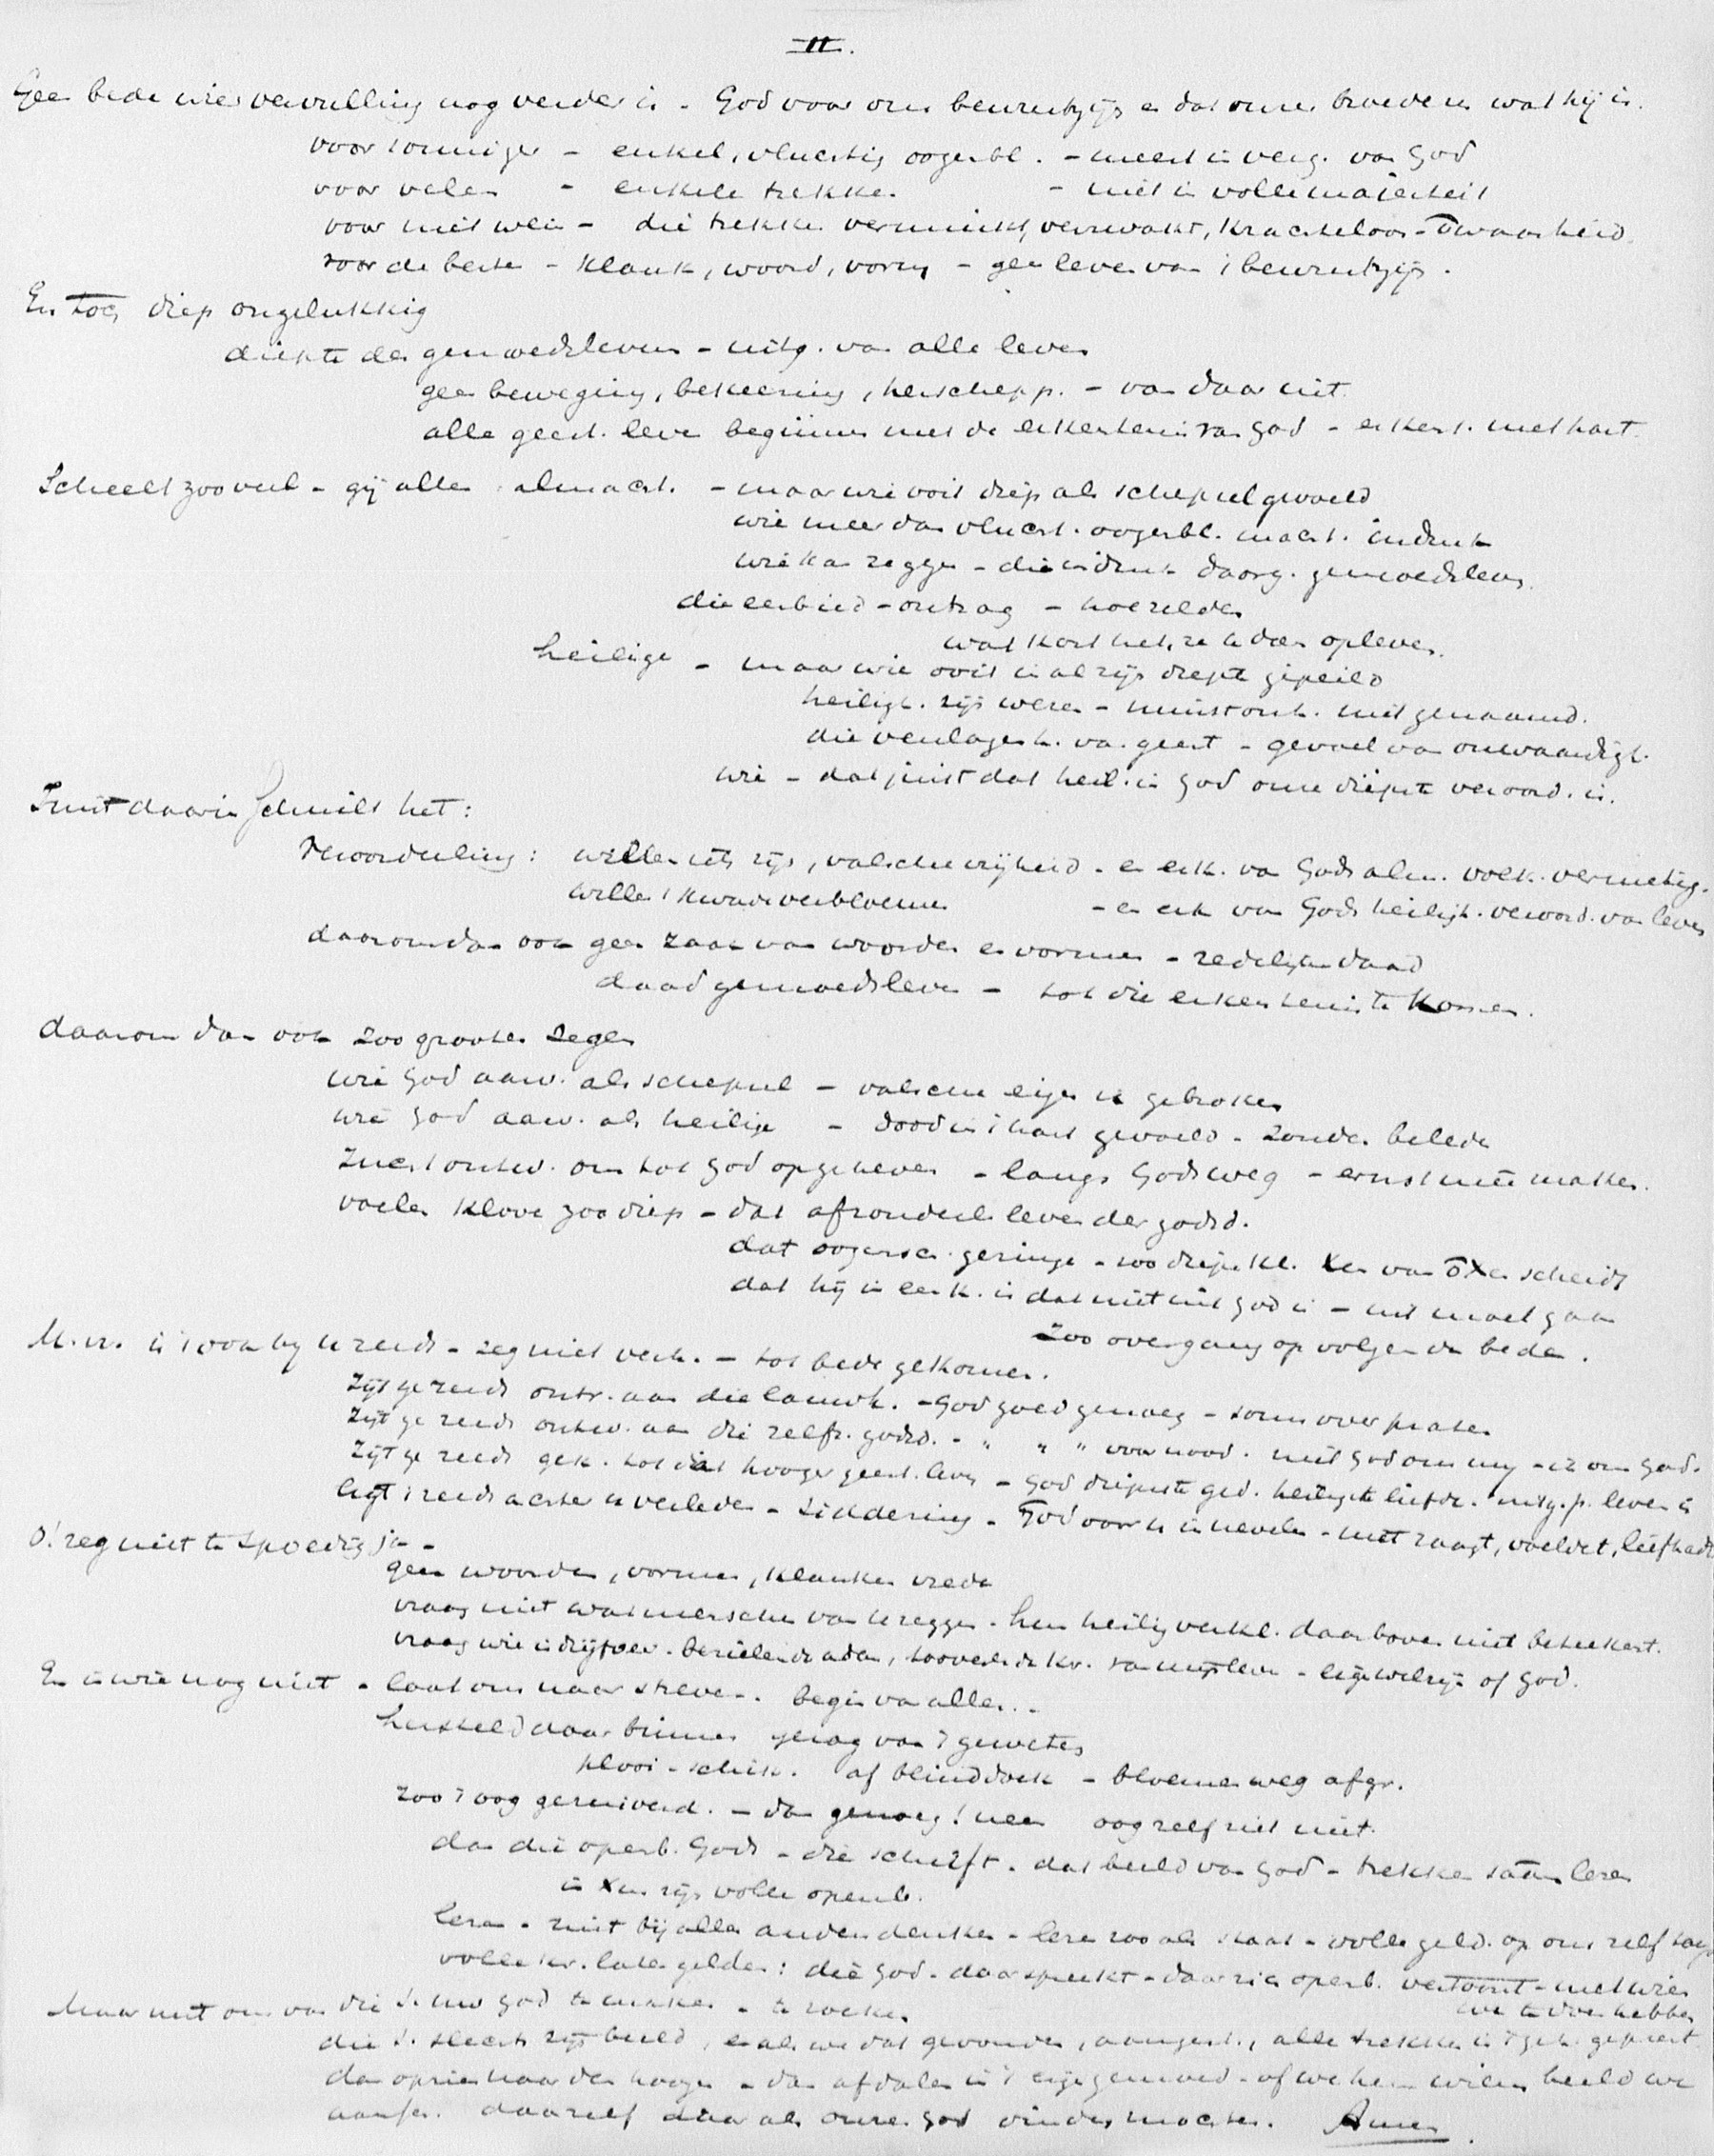 II.
Geen bede wier vervulling nog verder is - God voor ons bewustzijn en dat onzer broederen wat hij is.
voor sommigen - enkel, vluchtig oogenbl. - meest in verg. van God
voor velen - enkele trekken - niet in volle majesteit
voor niet wein - die trekken verminkt, verzwakt, krachteloos - onwaarheid
voor de beste - klank, woord, vorm - geen leven van 't bewustzijn.
En toch diep ongelukkig
diepte des gemoedsleven - uitg. van alle leven
geen beweging, bekeering, herschepp. - van daar uit
alle geest. leven beginnen met de erkentenis van God - erkent. met hart.
Scheelt zooveel - gij alle almacht. - maar wie ooit diep als schepsel gevoeld
wie meer dan vlucht. oogenbl. macht. indruk
wie kan zeggen - die indruk doorg. gemoedsleven
die eerbied - ontzag - hoe zelden
wat kost het, ze te doen opleven.
heilige - maar wie ooit in al zijn diepte gepeild
heiligh. zijn wezen - minst onh. niet genaamd.
die verslagenh. van geest - gevoel van onwaardigh.
wie - dat juist dat heil. in God onze diepste veroord. is.
Juist daarin schuilt het:
Veroordeeling: willen iets zijn, valsche vrijheid - en erk. van Gods alm. volk. vernietig.
willen 't kwade verbloemen - en erk van Gods heiligh. veroord. van leven
daarom dan ook geen zaak van woorden en vormen - zedelijke daad
daad gemoedsleven - tot die erkentenis te komen.
daarom dan ook zoo grooten zegen
wie God aanv. als schepsel - valsche eigen ik gebroken
wie God aanv. als heilige - dood in 't hart gevoeld - zonden beleden
opgeheven - langs Gods weg - ernst mee maken.
voelen klove zoo diep - dat afzonderl. leven der godsd.
dat oogensch. geringe - zoo diepe kl. Xen van onXen scheidt
dat hij in eerk. is dat niet uit God is - uit moet gaan
Zoo overgang op volgende bede.
M. vr. is 't ook bij u reeds - zeg niet verh. - tot bede gekomen.
Zijt ge reeds ontw. aan die lauwh. - God goed genoeg - soms over praten
Zijt ge reeds ontw. aan die zelfz. godsd. - " " " voor nood. niet God om mij - ik om God.
Zijt ge reeds gek. tot dat hooger geest. leven - God diepste ged. heiligste liefde. uitg. p. leven is
ligt 't reeds achter u verleden - siddering - God voor u in nevelen - niet zaagt, voeldet, liefhadt
O! zeg niet te spoedig ja -
geen woorden, vormen, klanken vrede
vraag niet wat menschen van u zeggen. hun heilig verkl. daarboven niet beteekent.
vraag wie is drijfveer. bezielende adem, kr. van mijn leven - eigenwelzijn of God.
En is wie nog niet - laat ons naar streven. begin van alles..
hersteld daar binnen gezag van 't geweten
plooi - schik. af blinddoek - bloemen weg afgr.
zoo 't oog gereinigd. - dan genoeg! neen oog zelf ziet niet.
dan die openb. Gods - die schrift. dat beeld van God - trekken saam lezen
in Xus zijn volle openb.
lezen - niet bij alles anderen denken - lezen zoo als staat - volle geld. op ons zelf
volle kr. laten gelden: die God - daar spreekt - daar zich openb. vertoont - met wien
we te doen hebben
Maar niet om van die S. uw God te maken - te zoeken
die S. slechts zijn beeld, en als we dat gevonden, aangesch., alle trekken in 't geh. geprent
dan opzien naar den hoogen - dan afdalen in 't eigen gemoed - of we hem wiens beeld we
aansch. daarzelf daar als onzen God vinden mochten. Amen.